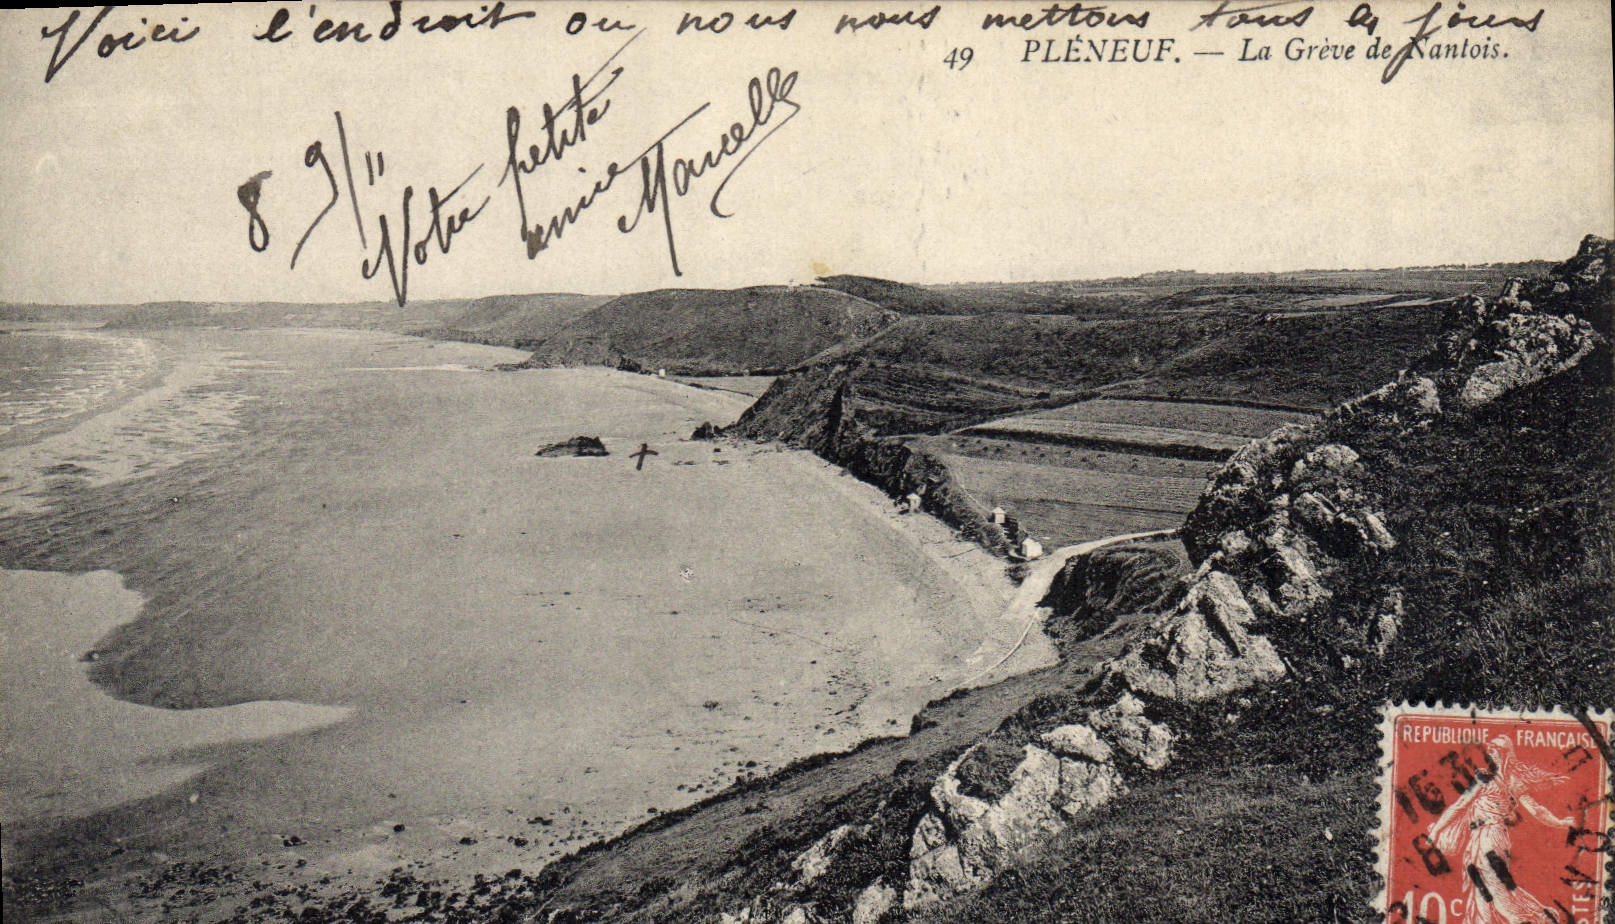 Voici l'endroit ou nous nous mettons tous les jours
49 PLÉNEUF. — La Grève de Nantois.
8 9/11
Votre petite
amie
Marcelle
REPUBLIQUE FRANÇAISE
16 30
8
11
10c
POSTES